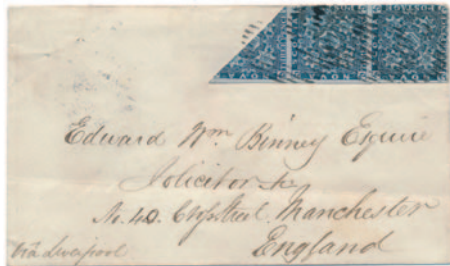 NOVA
Edward Wm Binney Esquire
Solicitor &c
No. 40. Cross Street Manchester
England
Via Liverpool